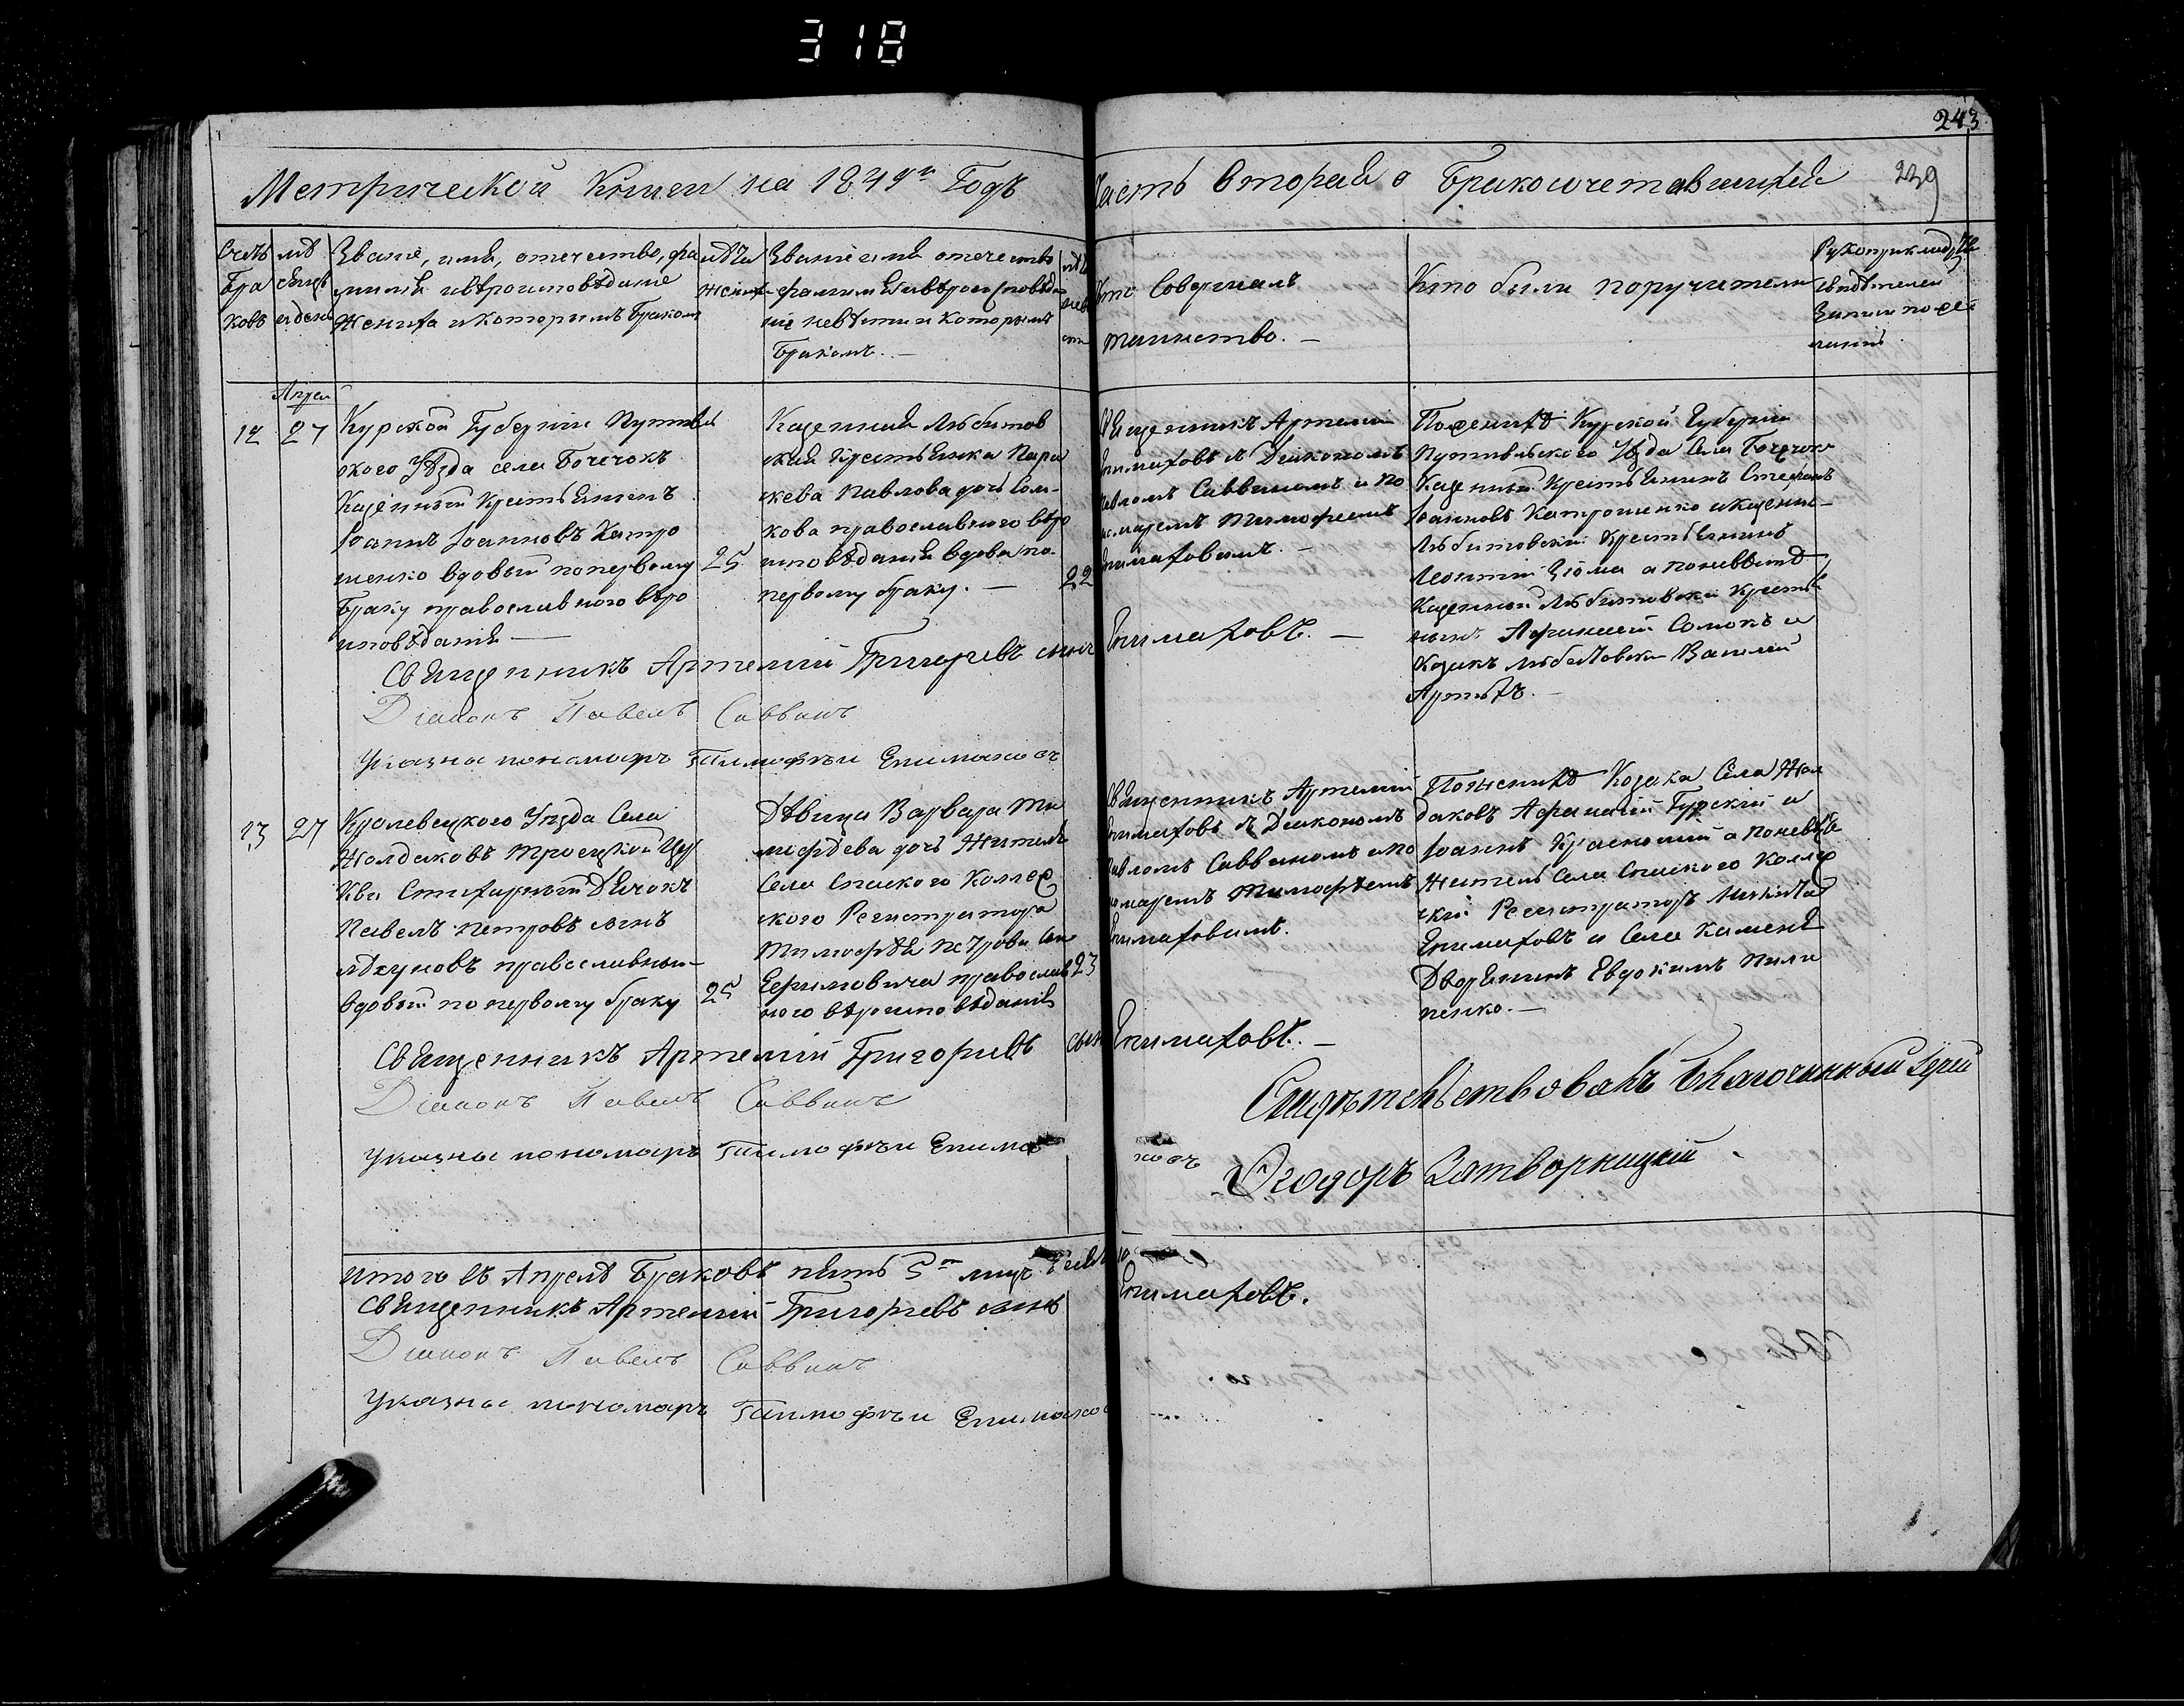 318
243
239
Метрической Книги на 1849й Годъ
Часть Вторая о Бракосочетавшихся
Счетъ
Бра
ковъ
мѣ
сяцъ
и день
Званіе, имя, отечество, фа
милія и вѣроисповѣданіе
Жениха и которымъ бракомъ
лѣта
жених
Званіе имя отечество
фамилія и вѣроисповѣда
ніе невѣсти и которымъ
бракомъ. —
Кто Совершалъ
таинство. —
Кто были поручители
Рукоприклад
свидѣтелей
Записи по же
ланію
Апрѣл
12
27
Курской Губерніи Путивль
ского Уѣзда села Бочечокъ
Казенный Крестьянинъ
Іоаннъ Іоанновъ Катро
шенко вдовый по первому
браку православного вѣро
исповѣданія —
25
Казенная Любитов
ская Крестьянка Пара
скева Павлова дочь Сом-
кова православного вѣро
исповѣданія вдова по-
первому браку. —
22
Священникъ Артемій
Епимаховъ съ Діакономъ
Павломъ Саввиномъ и По
номаремъ Тимофеемъ
Епимаховымъ. —
По женихѣ Курской Губерніи
Путивльского Уѣзда Села Бочечок
Казенный Крестьянинъ Стефанъ
Іоанновъ Катрошенко и Казенн-
Любитовскій Крестьянинъ
Леонтій Зюма а по невѣстѣ
Казенный Любитовскій Крестья
нинъ Афанасій Сомокъ и
Козакъ Любитовскій Василій
Артюхъ. —
Священникъ Артемій Григорьевъ сынъ Епимаховъ. —
Діаконъ Павелъ Саввинъ
Указной пономарь Тимофѣи Епимаховъ
13
27
Кролевецкого Уѣзда Села
Жолдаковъ Троецкой Цер
кви Стихарный Дьячокъ
Павелъ Петровъ сынъ
православный-
вдовый по первому браку
25
Дѣвица Варвара Ти
мофѣева дочь Жителя
Села Спаского Коллеж
ского Регистратора
Тимофѣя Петрова сына
Ефимовича православ
ного вѣроисповѣданія
23
Священникъ Артемій
Епимаховъ съ Діакономъ
Павломъ Саввиномъ и По
номаремъ Тимофѣемъ
Епимаховымъ.
По женихѣ Козака Села Жол
даковъ Афанасій Гурскій и
Іоаннъ Красношій а по невѣстѣ
Житель Села Спаского Коллеж
скій Регистраторъ Никита
Епимаховъ и Села Каменя
Дворянинъ Евдокимъ Пили
пенко. —
Священникъ Артемій Григорьевъ сынъ Епимаховъ. —
Діаконъ Павелъ Саввинъ
Указной пономарь Тимофѣи Епимаховъ
Свидѣтельствовалъ Благочинный Іерей
Ѳеодоръ Затворницкій
Итого въ Апрелѣ Браковъ пять 5ть
Священникъ Артемій Григорьевъ сынъ Епимаховъ.
Діаконъ Павелъ Саввинъ
Указной пономарь Тимофѣи Епимахов